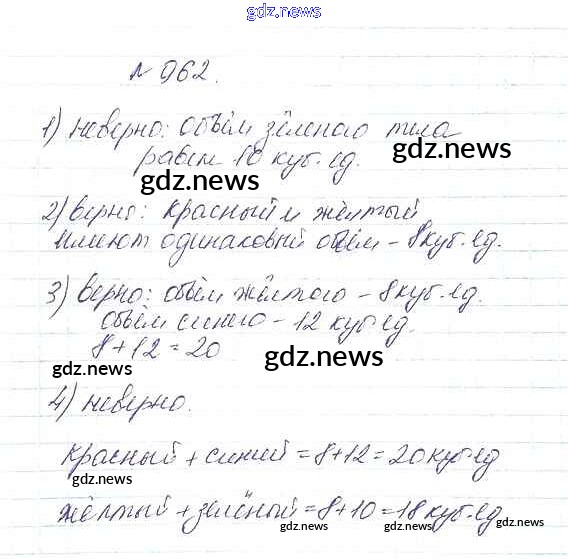 gdz.news
№ 962.
1) неверно: объём зелёного тела
равен 10 куб. ед.
gdz.news
gdz.news
2) верно: красный и жёлтый
имеют одинаковый объём – 8 куб. ед.
3) верно: объём жёлтого – 8 куб. ед.
объём синего – 12 куб. ед.
8 + 12 = 20
gdz.news
gdz.news
4) неверно.
красный + синий = 8+12 = 20 куб ед
gdz.news
жёлтый + зелёный = 8+10 = 18 куб. ед.
gdz.news
gdz.news
gdz.news